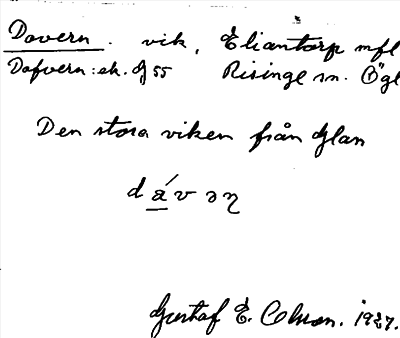 Dovern. vik, Eliantorp mfl
Dofvern: ek. G 55 Risinge sn. Ögl
Den stora viken från Glan
dávəη
Gustaf E. Olsson. 1927.